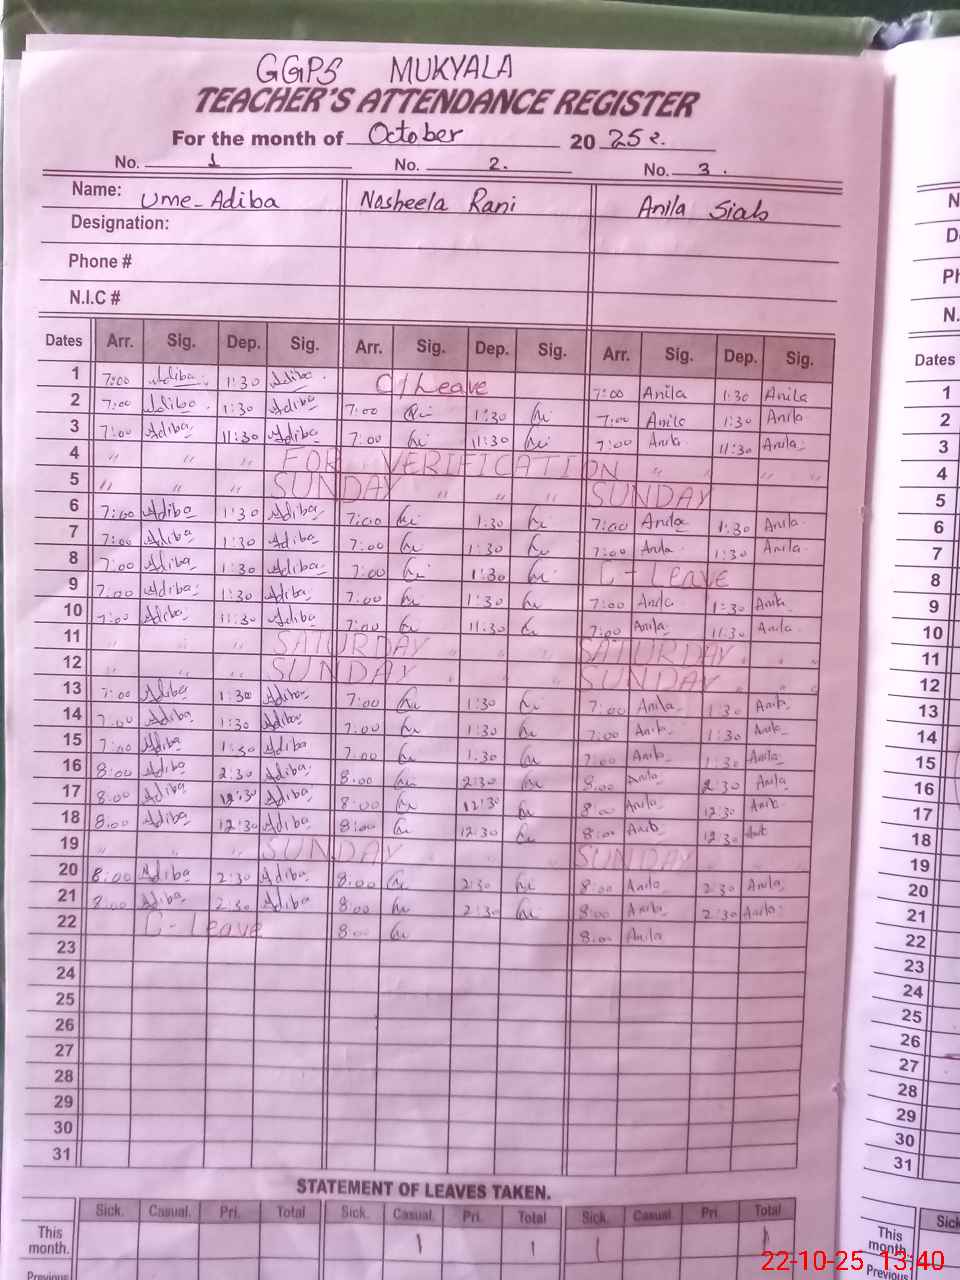 GGPS MUKYALA
TEACHER'S ATTENDANCE REGISTER
For the month of October 2025
No. 1 No. 2. No. 3.
Name: Ume-Adiba Nosheela Rani Anila Siab
Designation:
Phone #
N.I.C #
Dates Arr. Sig. Dep. Sig. Arr. Sig. Dep. Sig. Arr. Sig. Dep. Sig.
1 7:00 Adiba 1:30 Adiba C/Leave 7:00 Anila 1:30 Anila
2 7:00 Adiba 1:30 Adiba 7:00 1:30 7:00 Anila 1:30 Anila
3 7:00 Adiba 11:30 Adiba 7:00 11:30 7:00 Anila 11:30 Anila
4 " " " FOR VERIFICATION " " " "
5 " " " SUNDAY " " " SUNDAY
6 7:00 Adiba 1:30 Adiba 7:00 1:30 7:00 Anila 1:30 Anila
7 7:00 Adiba 1:30 Adiba 7:00 1:30 7:00 Anila 1:30 Anila
8 7:00 Adiba 1:30 Adiba 7:00 1:30 C-Leave
9 7:00 Adiba 1:30 Adiba 7:00 1:30 7:00 Anila 1:30 Anila
10 7:00 Adiba 11:30 Adiba 7:00 11:30 7:00 Anila 11:30 Anila
11 " " " SATURDAY " " " SATURDAY " "
12 " " " SUNDAY " " " SUNDAY " "
13 7:00 Adiba 1:30 Adiba 7:00 1:30 7:00 Anila 1:30 Anila
14 7:00 Adiba 1:30 Adiba 7:00 1:30 7:00 Anila 1:30 Anila
15 7:00 Adiba 1:30 Adiba 7:00 1:30 7:00 Anila 1:30 Anila
16 8:00 Adiba 2:30 Adiba 8:00 2:30 8:00 Anila 2:30 Anila
17 8:00 Adiba 12:30 Adiba 8:00 12:30 8:00 Anila 12:30 Anila
18 8:00 Adiba 12:30 Adiba 8:00 12:30 8:00 Anila 12:30 Anila
19 " " " SUNDAY " " SUNDAY " "
20 8:00 Adiba 2:30 Adiba 8:00 2:30 8:00 Anila 2:30 Anila
21 8:00 Adiba 2:30 Adiba 8:00 2:30 8:00 Anila 2:30 Anila
22 C-Leave 8:00 8:00 Anila
23
24
25
26
27
28
29
30
31
STATEMENT OF LEAVES TAKEN.
Sick. Casual. Pri. Total Sick. Casual. Pri. Total Sick. Casual. Pri. Total
This month. 1 1 1 1
Previous
N
De
Ph
N.
Dates
1
2
3
4
5
6
7
8
9
10
11
12
13
14
15
16
17
18
19
20
21
22
23
24
25
26
27
28
29
30
31
Sick
This month.
Previous
22-10-25 13:40